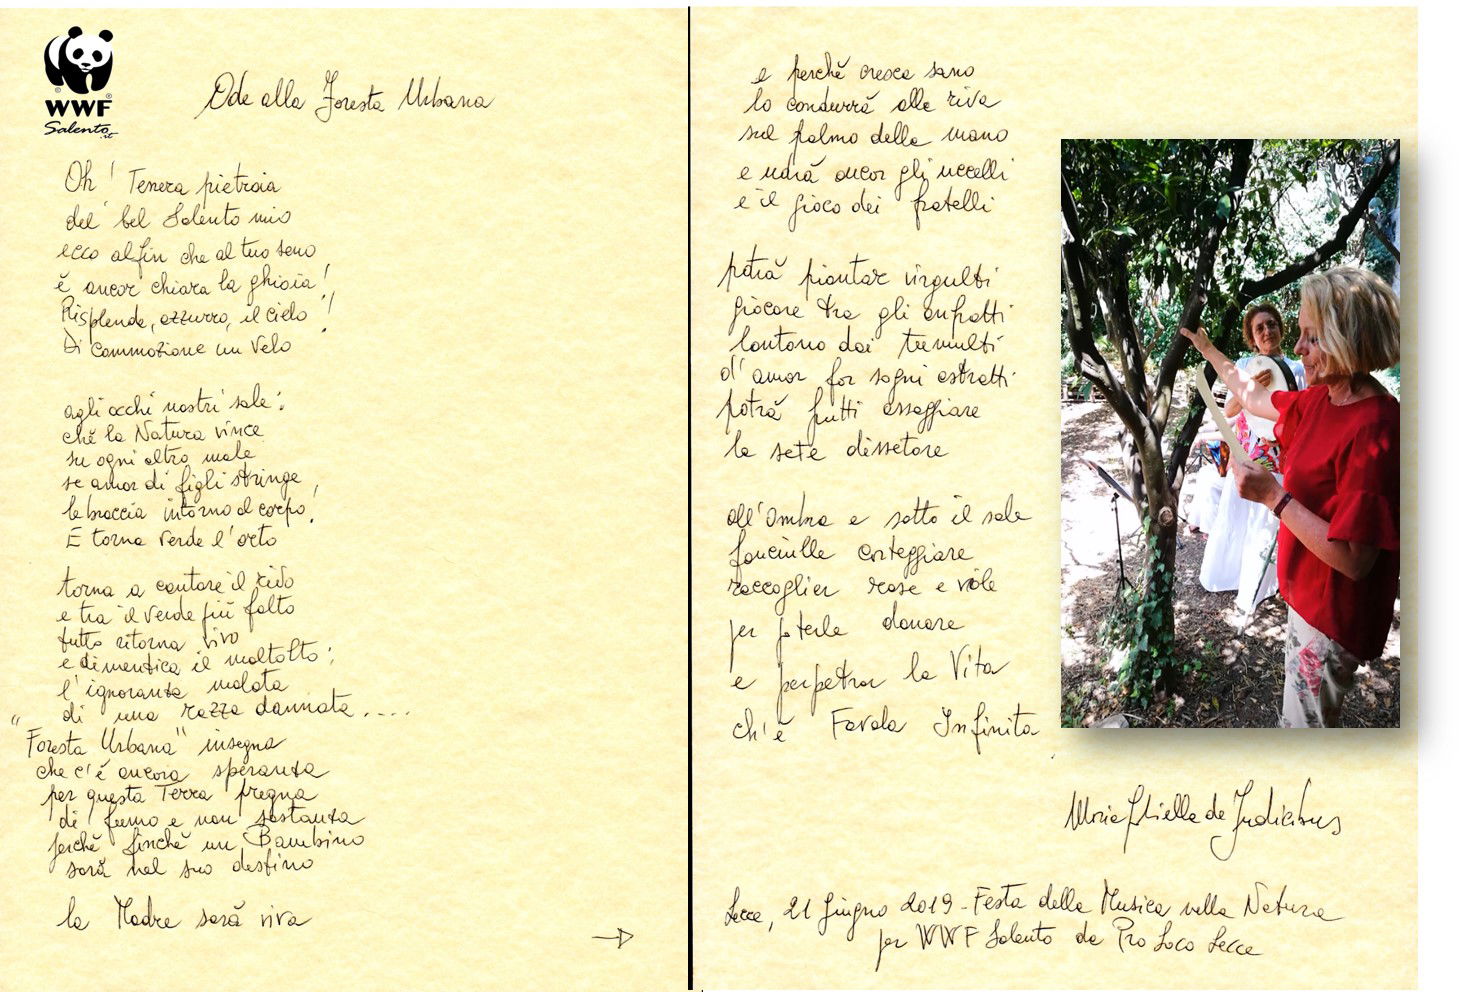 WWF
Salento.it
Ode alla Foresta Urbana
Oh! Tenera pietraia
del bel Salento mio
ecco alfin che al tuo seno
è ancor chiara la ghiaia!
Risplende, azzurro, il cielo!
Di commozione un velo
agli occhi nostri sale:
chè la Natura vince
su ogni altro male
se amor di figli stringe
le braccia intorno al corpo!
E torna verde l'orto
torna a cantare il rivo
e tra il verde più folto
tutto ritorna vivo
e dimentica il maltolto:
l'ignoranza malata
di una razza dannata....
"Foresta Urbana" insegna
che c'è ancora speranza
per questa Terra pregna
di fumo e non sostanza
perchè finchè un Bambino
sarà nel suo destino
la Madre sarà viva
e perchè cresca sano
lo condurrà alla riva
sul palmo della mano
e udrà ancor gli uccelli
e il gioco dei fratelli
potrà piantar virgulti
giocare tra gli anfratti
lontano dai tumulti
d'amor far sogni astratti
potrà frutti assaggiare
la sete dissetare
all'ombra e sotto il sole
fanciulle corteggiare
raccoglier rose e viole
per poterle donare
e perpetrar la Vita
ch'è Favola Infinita.
de Judicibus
Lecce, 21 Giugno 2019 - Festa della Musica nella Natura
per WWF Salento da Pro Loco Lecce